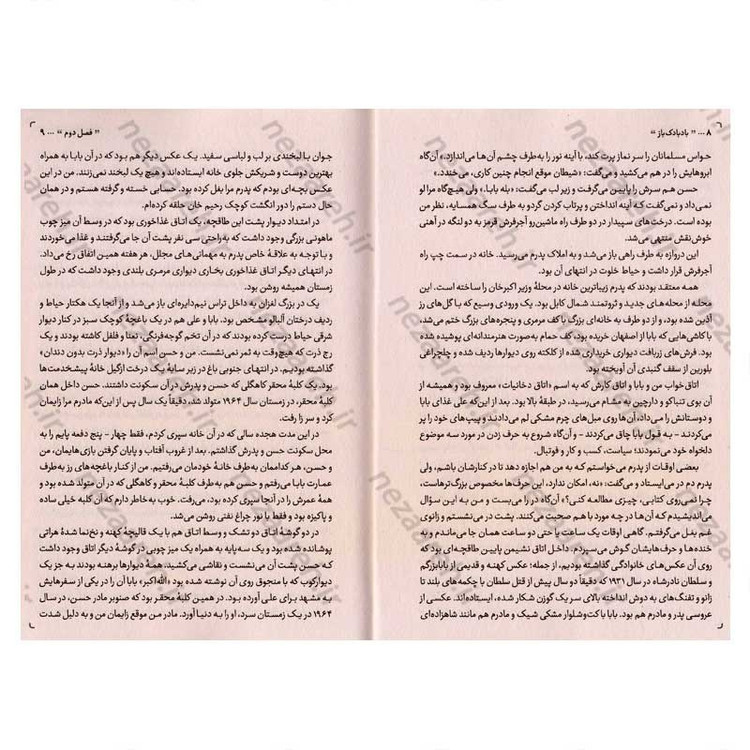 ۸ ... " بادبادک‌باز "
حواس مسلمانان را سر نماز پرت کند، با آینه نور را به‌طرف چشم آن‌ها می‌اندازد.» آن‌گاه
ابروهایش را در هم می‌کشید و می‌گفت: «شیطان موقع انجام چنین کاری، می‌خندد.»
حسن هم سرش را پایین می‌گرفت و زیر لب می‌گفت: «بله بابا.» ولی هیچ‌گاه مرا لو
نمی‌داد و نمی‌گفت که آینه انداختن و پرتاب کردن گردو به طرف سگ همسایه، نظر من
بوده است. درخت‌های سپیدار در دو طرف راه ماشین‌رو آجرفرش قرمز به دو لنگه در آهنی
خوش‌نقش منتهی می‌شد.
این دروازه به طرف راهی باز می‌شد و به املاک پدرم می‌رسید. خانه در سمت چپ راه
آجرفرش قرار داشت و حیاط خلوت در انتهای آن بود.
همه معتقد بودند که پدرم زیباترین خانه در محلهٔ وزیر اکبرخان را ساخته است. این
محله از محله‌های جدید و ثروتمند شمال کابل بود. یک ورودی وسیع که با گل‌های رز
آذین شده بود، و از دو طرف به خانه‌ای بزرگ با کف مرمری و پنجره‌های بزرگ ختم می‌شد،
با کاشی‌هایی که بابا از اصفهان خریده بود، کف حمام به صورت هنرمندانه‌ای پوشیده شده
بود. فرش‌های زربافت دیواری خریداری شده از کلکته روی دیوارها ردیف شده و چلچراغی
بلورین از سقف گنبدی آن آویخته بود.
اتاق‌خواب من و بابا و اتاق کارش که به اسم «اتاق دخانیات» معروف بود و همیشه از
آن بوی تنباکو و دارچین به مشام می‌رسید، در طبقهٔ بالا بود. بعد از این‌که علی غذای بابا
و دوستانش را می‌داد، آن‌ها روی مبل‌های چرم مشکی لم می‌دادند و پیپ‌های خود را پر
می‌کردند – به قول بابا چاق می‌کردند – و آن‌گاه شروع به حرف زدن در مورد سه موضوع
دلخواه خود می‌نمودند؛ سیاست، کسب و کار و فوتبال.
بعضی اوقات از پدرم می‌خواستم که به من هم اجازه دهد تا در کنارشان باشم، ولی
پدرم دم در می‌ایستاد و می‌گفت: «نه، امکان ندارد، این حرف‌ها مخصوص بزرگ‌ترهاست،
چرا نمی‌روی کتابی، چیزی مطالعه کنی؟» آن‌گاه در را می‌بست و من به این سؤال
می‌اندیشیدم که آن‌ها در چه مورد با هم صحبت می‌کنند. پشت در می‌نشستم و زانوی
غم بغل می‌گرفتم. گاهی اوقات یک ساعت یا حتی دو ساعت همان جا می‌ماندم و به
خنده‌ها و حرف‌هایشان گوش می‌سپردم. داخل اتاق نشیمن پایین طاقچه‌ای بود که
روی آن عکس‌های خانوادگی گذاشته بودیم، از جمله: عکس کهنه و قدیمی از بابابزرگم
و سلطان نادرشاه در سال ۱۹۳۱ که دقیقاً دو سال پیش از قتل سلطان با چکمه‌های بلند تا
زانو و تفنگ‌های به دوش انداخته بالای سر یک گوزن شکار شده، ایستاده‌اند. عکسی از
عروسی پدر و مادرم هم بود. بابا با کت‌وشلوار مشکی شیک و مادرم هم مانند شاهزاده‌ای
" فصل دوم " ... ۹
جوان با لبخندی بر لب و لباسی سفید. یک عکس دیگر هم بود که در آن بابا به همراه
بهترین دوست و شریکش جلوی خانه ایستاده‌اند و هیچ یک لبخند نمی‌زنند. من در این
عکس بچه‌ای بودم که پدرم مرا بغل کرده بود. حسابی خسته و گرفته هستم و در همان
حال دستم را دور انگشت کوچک رحیم خان حلقه کرده‌ام.
در امتداد دیوار پشت این طاقچه، یک اتاق غذاخوری بود که در وسط آن میز چوب
ماهونی بزرگی وجود داشت که به‌راحتی سی نفر پشت آن جا می‌گرفتند و غذا می‌خوردند
و با توجه به علاقهٔ خاص پدرم به مهمانی‌های مجلل، هر هفته همین اتفاق رخ می‌داد.
در انتهای دیگر اتاق غذاخوری بخاری دیواری مرمری بلندی وجود داشت که در طول
زمستان همیشه روشن بود.
یک در بزرگ لغزان به داخل تراس نیم‌دایره‌ای باز می‌شد و از آنجا یک هکتار حیاط و
ردیف درختان آلبالو مشخص بود. بابا و علی هم در یک باغچهٔ کوچک سبز در کنار دیوار
شرقی حیاط درست کرده بودند که در آن تخم گوجه‌فرنگی، نعنا و فلفل کاشته بودند و یک
رج ذرت که هیچ‌وقت به ثمر نمی‌نشست. من و حسن اسم آن را «دیوار ذرت بدون دندان»
گذاشته بودیم. در انتهای جنوبی باغ در زیر سایهٔ یک درخت ازگیل خانهٔ پیشخدمت‌ها
بود. یک کلبهٔ محقر کاهگلی که حسن و پدرش در آن سکونت داشتند. حسن داخل همان
کلبهٔ محقر، در زمستان سال ۱۹۶۴ متولد شد، دقیقاً یک سال پس از این‌که مادرم مرا زایمان
کرد و سر زا رفت.
در این مدت هجده سالی که در آن خانه سپری کردم، فقط چهار – پنج دفعه پایم را به
محل سکونت حسن و پدرش گذاشتم. بعد از غروب آفتاب و پایان گرفتن بازی‌هایمان، من
و حسن، هر کداممان به طرف خانهٔ خودمان می‌رفتیم. من از کنار باغچه‌های رز به‌طرف
عمارت بابا می‌رفتم و حسن هم به طرف کلبهٔ محقر و کاهگلی که در آن متولد شده بود و
همهٔ عمرش را در آنجا سپری کرده بود، می‌رفت. خوب به‌خاطر دارم که آن کلبه خیلی ساده
و پاکیزه بود و فقط با نور چراغ نفتی روشن می‌شد.
در دو گوشهٔ اتاق دو تشک و وسط اتاق هم با یک قالیچهٔ کهنه و نخ‌نما شدهٔ هراتی
پوشانده شده بود و یک سه‌پایه به همراه یک میز چوبی در گوشهٔ دیگر اتاق وجود داشت
که حسن پشت آن می‌نشست و نقاشی می‌کشید، همهٔ دیوارها برهنه بودند به جز یک
دیوارکوب که با منجوق روی آن نوشته شده بود «الله‌اکبر» بابا آن را در یکی از سفرهایش
به مشهد برای علی آورده بود. در همین کلبهٔ محقر بود که صنوبر مادر حسن، در سال
۱۹۶۴ در یک زمستان سرد، او را به دنیا آورد. مادر من موقع زایمان من و به دلیل شدت
nezaareh.ir